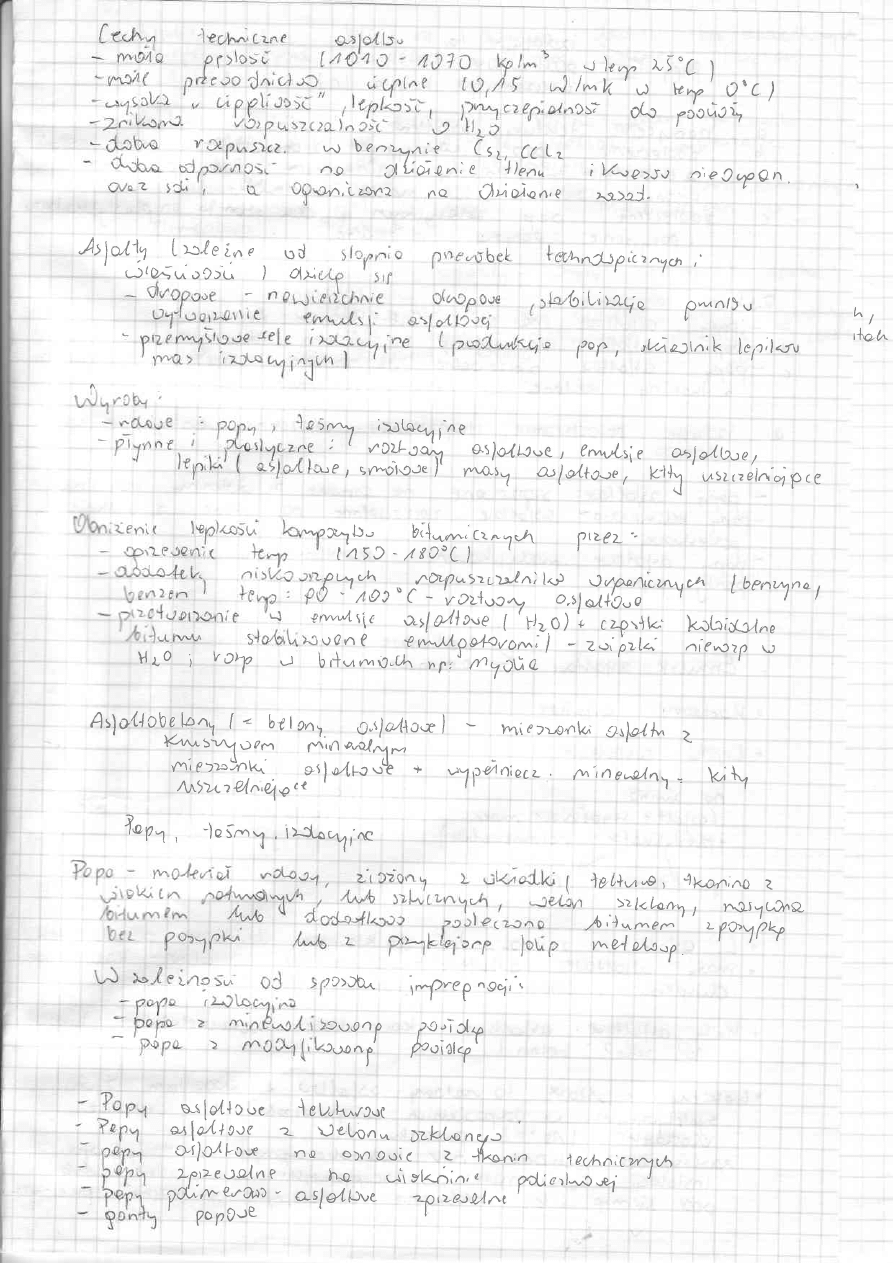 Cechy techniczne asfaltów
- mała gęstość (1010 - 1070 kg/m³ w temp 25°C)
- małe przewodnictwo cieplne (0,15 W/mK w temp 0°C)
- wysoka "ciągliwość", lepkość, przyczepialność do podłoży
- znikoma rozpuszczalność w H₂O
- dobra rozpuszcz. w benzynie CS₂, CCl₂
- dobra odporność na działanie tlenu i kwasów nieorgan.
oraz soli, a ograniczona na działanie zasad.
Asfalty (zależne od stopnia przeróbek technologicznych i
właściwości) dzielą się
- drogowe - nawierzchnie drogowe, stabilizacja gruntów
wytworzenie emulsji asfaltowej
- przemysłowe cele izolacyjne (produkcja pap, składnik lepików
mas izolacyjnych)
h,
itach
Wyroby:
- rolowe : papy, taśmy izolacyjne
- płynne i plastyczne : roztwory asfaltowe, emulsje asfaltowe,
lepiki (asfaltowe, smołowe) masy asfaltowe, kity uszczelniające
Obniżenie lepkości kompozytów bitumicznych przez:
- ogrzewanie temp (150 - 180°C)
- dodatek niskowrzących rozpuszczalników organicznych (benzyna,
benzen) temp: 80 - 100°C - roztwory asfaltowe
- przetworzenie w emulsje asfaltowe (H₂O) + cząstki koloidalne
bitumu stabilizowane emulgatorami) - związki nierozp w
H₂O i rozp w bitumach np: mydła
Asfaltobetony (= betony asfaltowe) - mieszanki asfaltu z
kruszywem mineralnym
mieszanki asfaltowe + wypełniacz mineralny = kity
uszczelniające
Papy, taśmy izolacyjne
Papa - materiał rolowy, złożony z wkładki (tektura, tkanina z
włókien naturalnych, lub sztucznych, welon szklany, nasycona
bitumem lub dodatkowo powleczona bitumem z posypką
bez posypki lub z przyklejoną folią metalową.
W zależności od sposobu impregnacji:
- papa izolacyjna
- papa z mineralizowaną powłoką
- papa z modyfikowaną powłoką
- Papy asfaltowe tekturowe
- Papy asfaltowe z welonu szklanego
- papy asfaltowe na osnowie z tkanin technicznych
- papy zgrzewalne na włókninie poliestrowej
- papy polimerowo-asfaltowe zgrzewalne
- gonty papowe